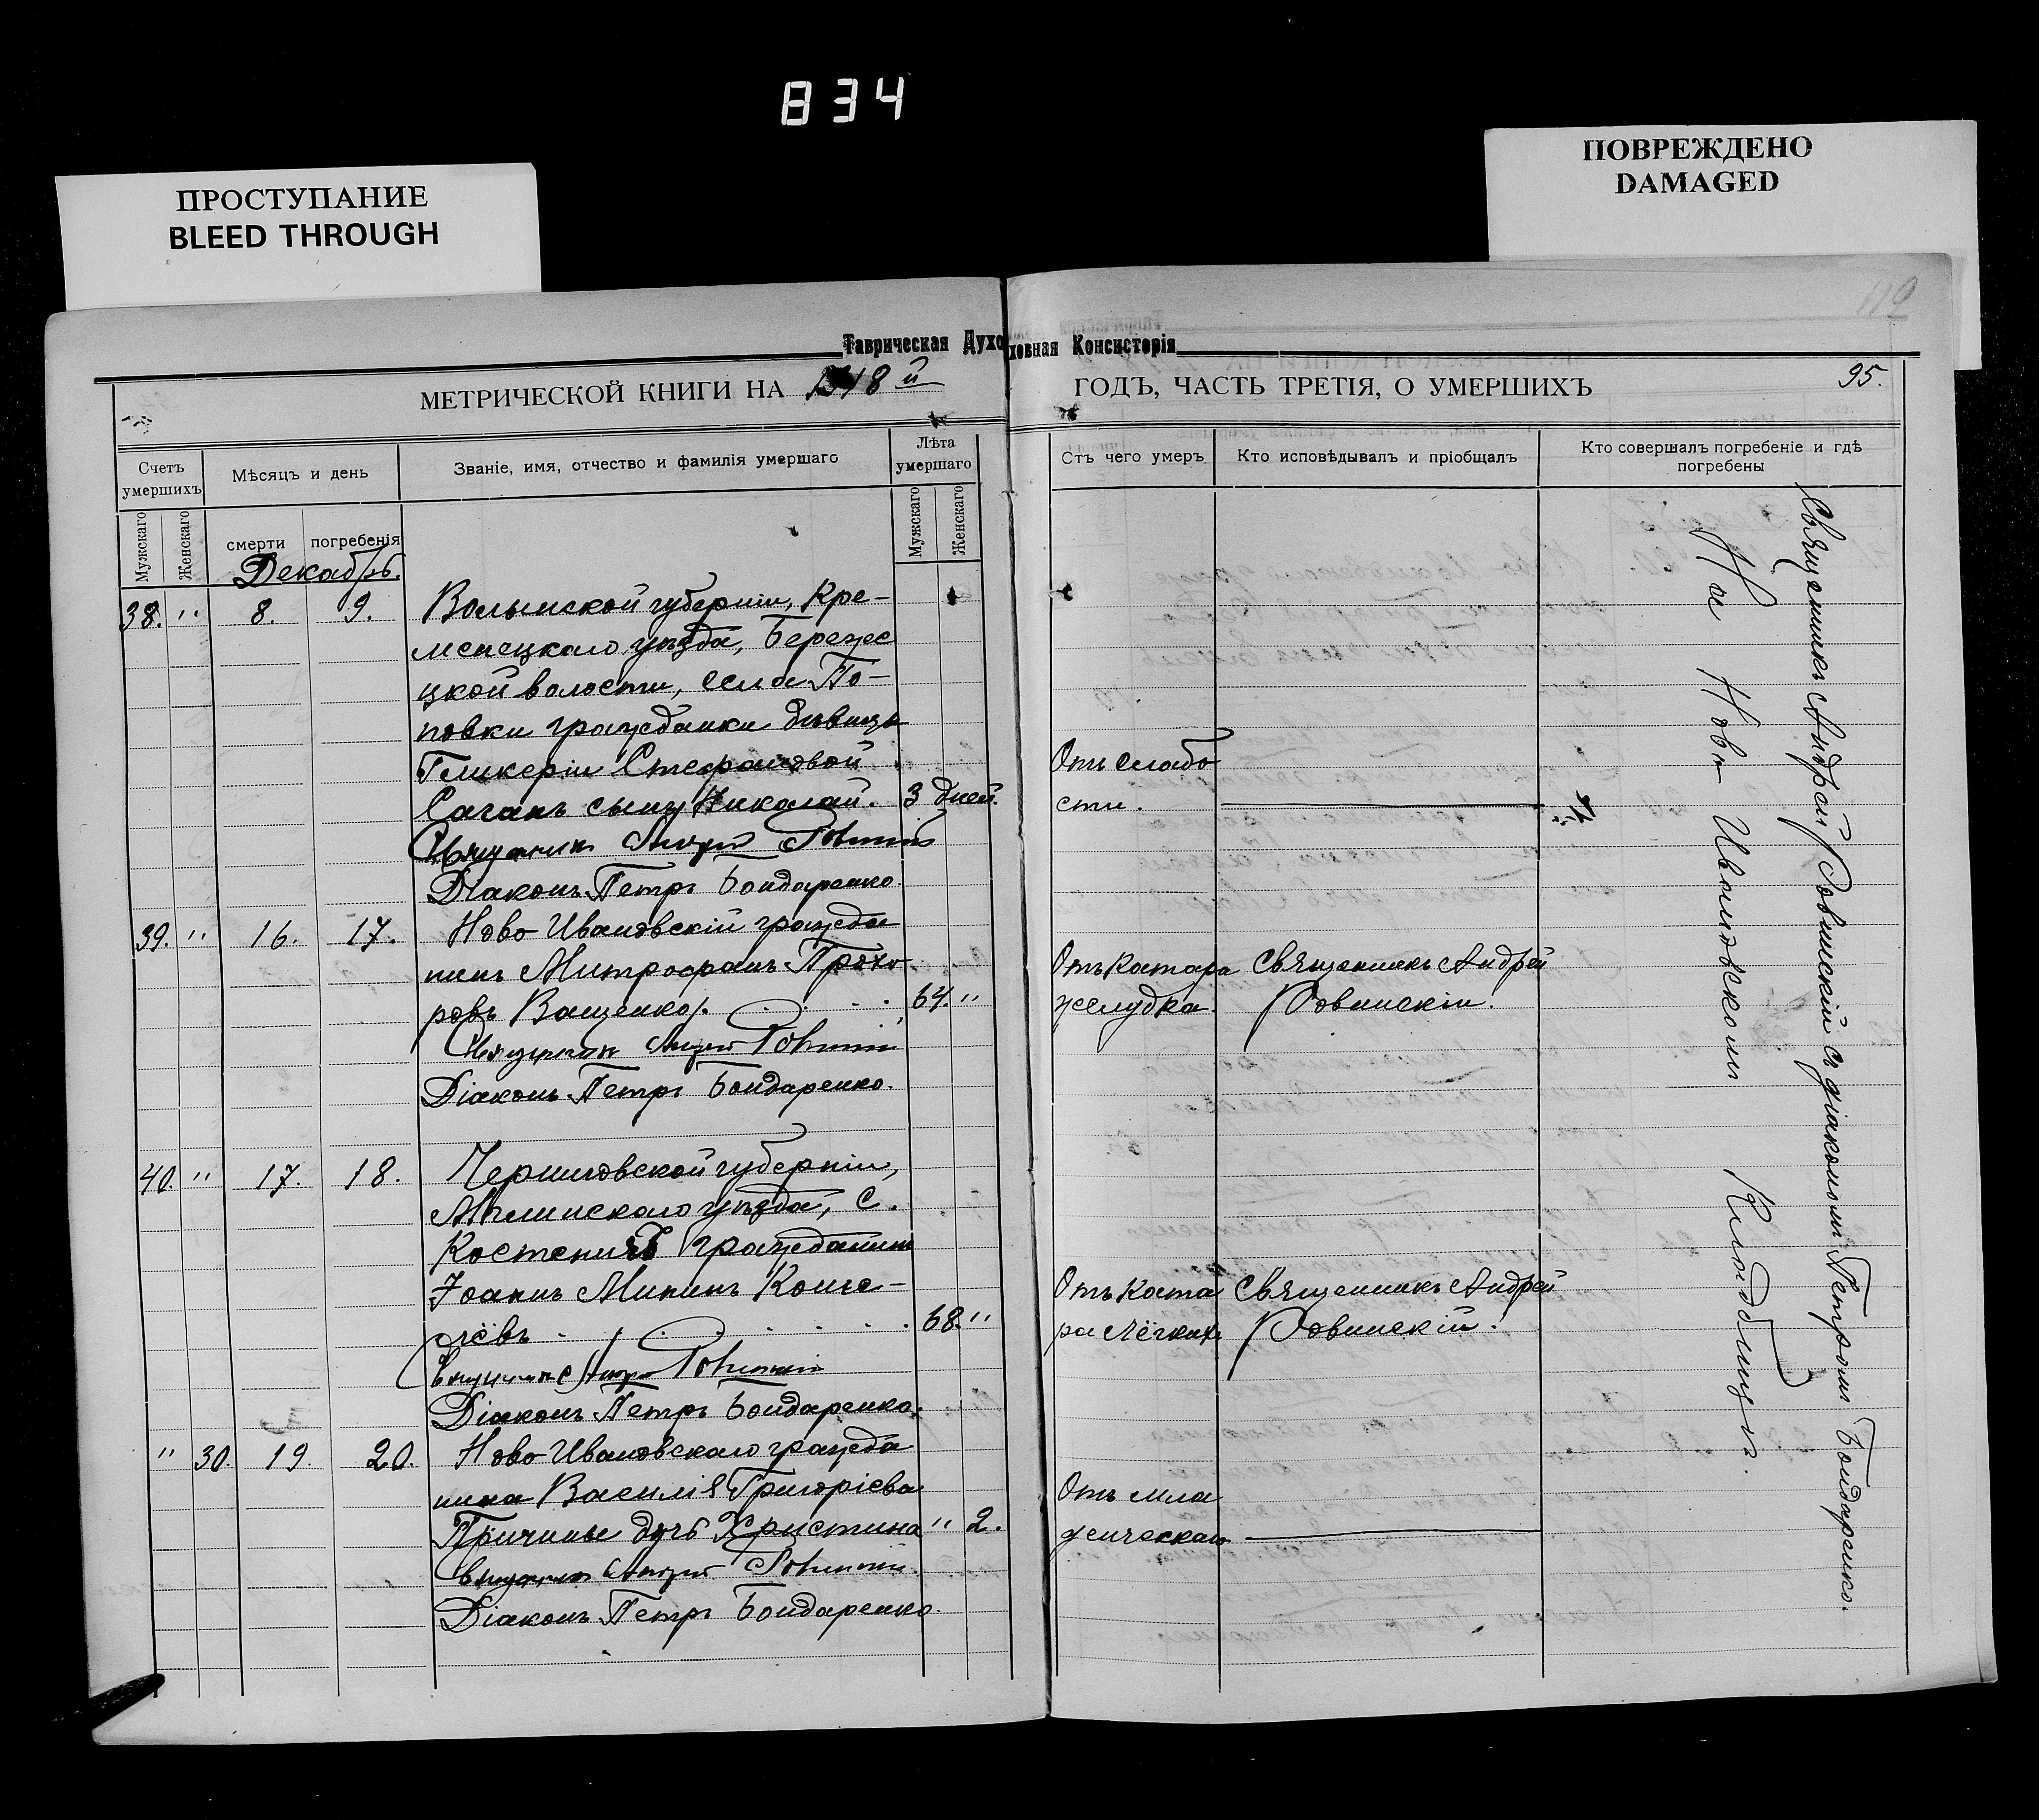 834
ПРОСТУПАНИЕ
BLEED THROUGH
ПОВРЕЖДЕНО
DAMAGED
110
Таврическая Духовная Консисторія
МЕТРИЧЕСКОЙ КНИГИ НА 1918й ГОДЪ, ЧАСТЬ ТРЕТІЯ, О УМЕРШИХЪ 95.
Счетъ умершихъ
Мѣсяцъ и день
Званіе, имя, отчество и фамилія умершаго
Лѣта умершаго
Отъ чего умеръ
Кто исповѣдывалъ и пріобщалъ
Кто совершалъ погребеніе и гдѣ погребены
Мужскаго
Женскаго
смерти
погребенія
Мужскаго
Женскаго
Декабрь.
38. " 8. 9. Волынской губерніи, Кре-
менецкаго уѣзда, Бережес
цкой волости, села По-
повки гражданки дѣвицы
Гликеріи Стефановой
Саганъ сынъ Николай. 3 дней.
Отъ слабо
сти.
Священникъ Андрей Ровинскій
Діаконъ Петръ Бондаренко.
39. " 16. 17. Ново Ивановскій гражда
нинъ Митрофанъ Прохо
ровъ Ващенко. 64. "
Отъ катара
желудка.
Священникъ Андрей
Ровинскій.
Священникъ Андрей Ровинскій
Діаконъ Петръ Бондаренко.
40. " 17. 18. Черниговской губерніи,
Мглинскаго уѣзда, С.
Костеничъ гражданинъ
Іоаннъ Мининъ Коше-
лёвъ 68. "
Отъ ката
ра лёгкихъ
Священникъ Андрей
Ровинскій.
Священникъ Андрей Ровинскій
Діаконъ Петръ Бондаренко.
" 30. 19. 20. Ново Ивановскаго гражда
нина Василія Григоріева
Дочь Христина " 2.
Отъ мла
денческаго
Священникъ Андрей Ровинскій.
Діаконъ Петръ Бондаренко.
Священникъ Андрей Ровинскій съ діакономъ Петромъ Бондаренко.
На Ново Ивановскомъ Кладбищѣ.